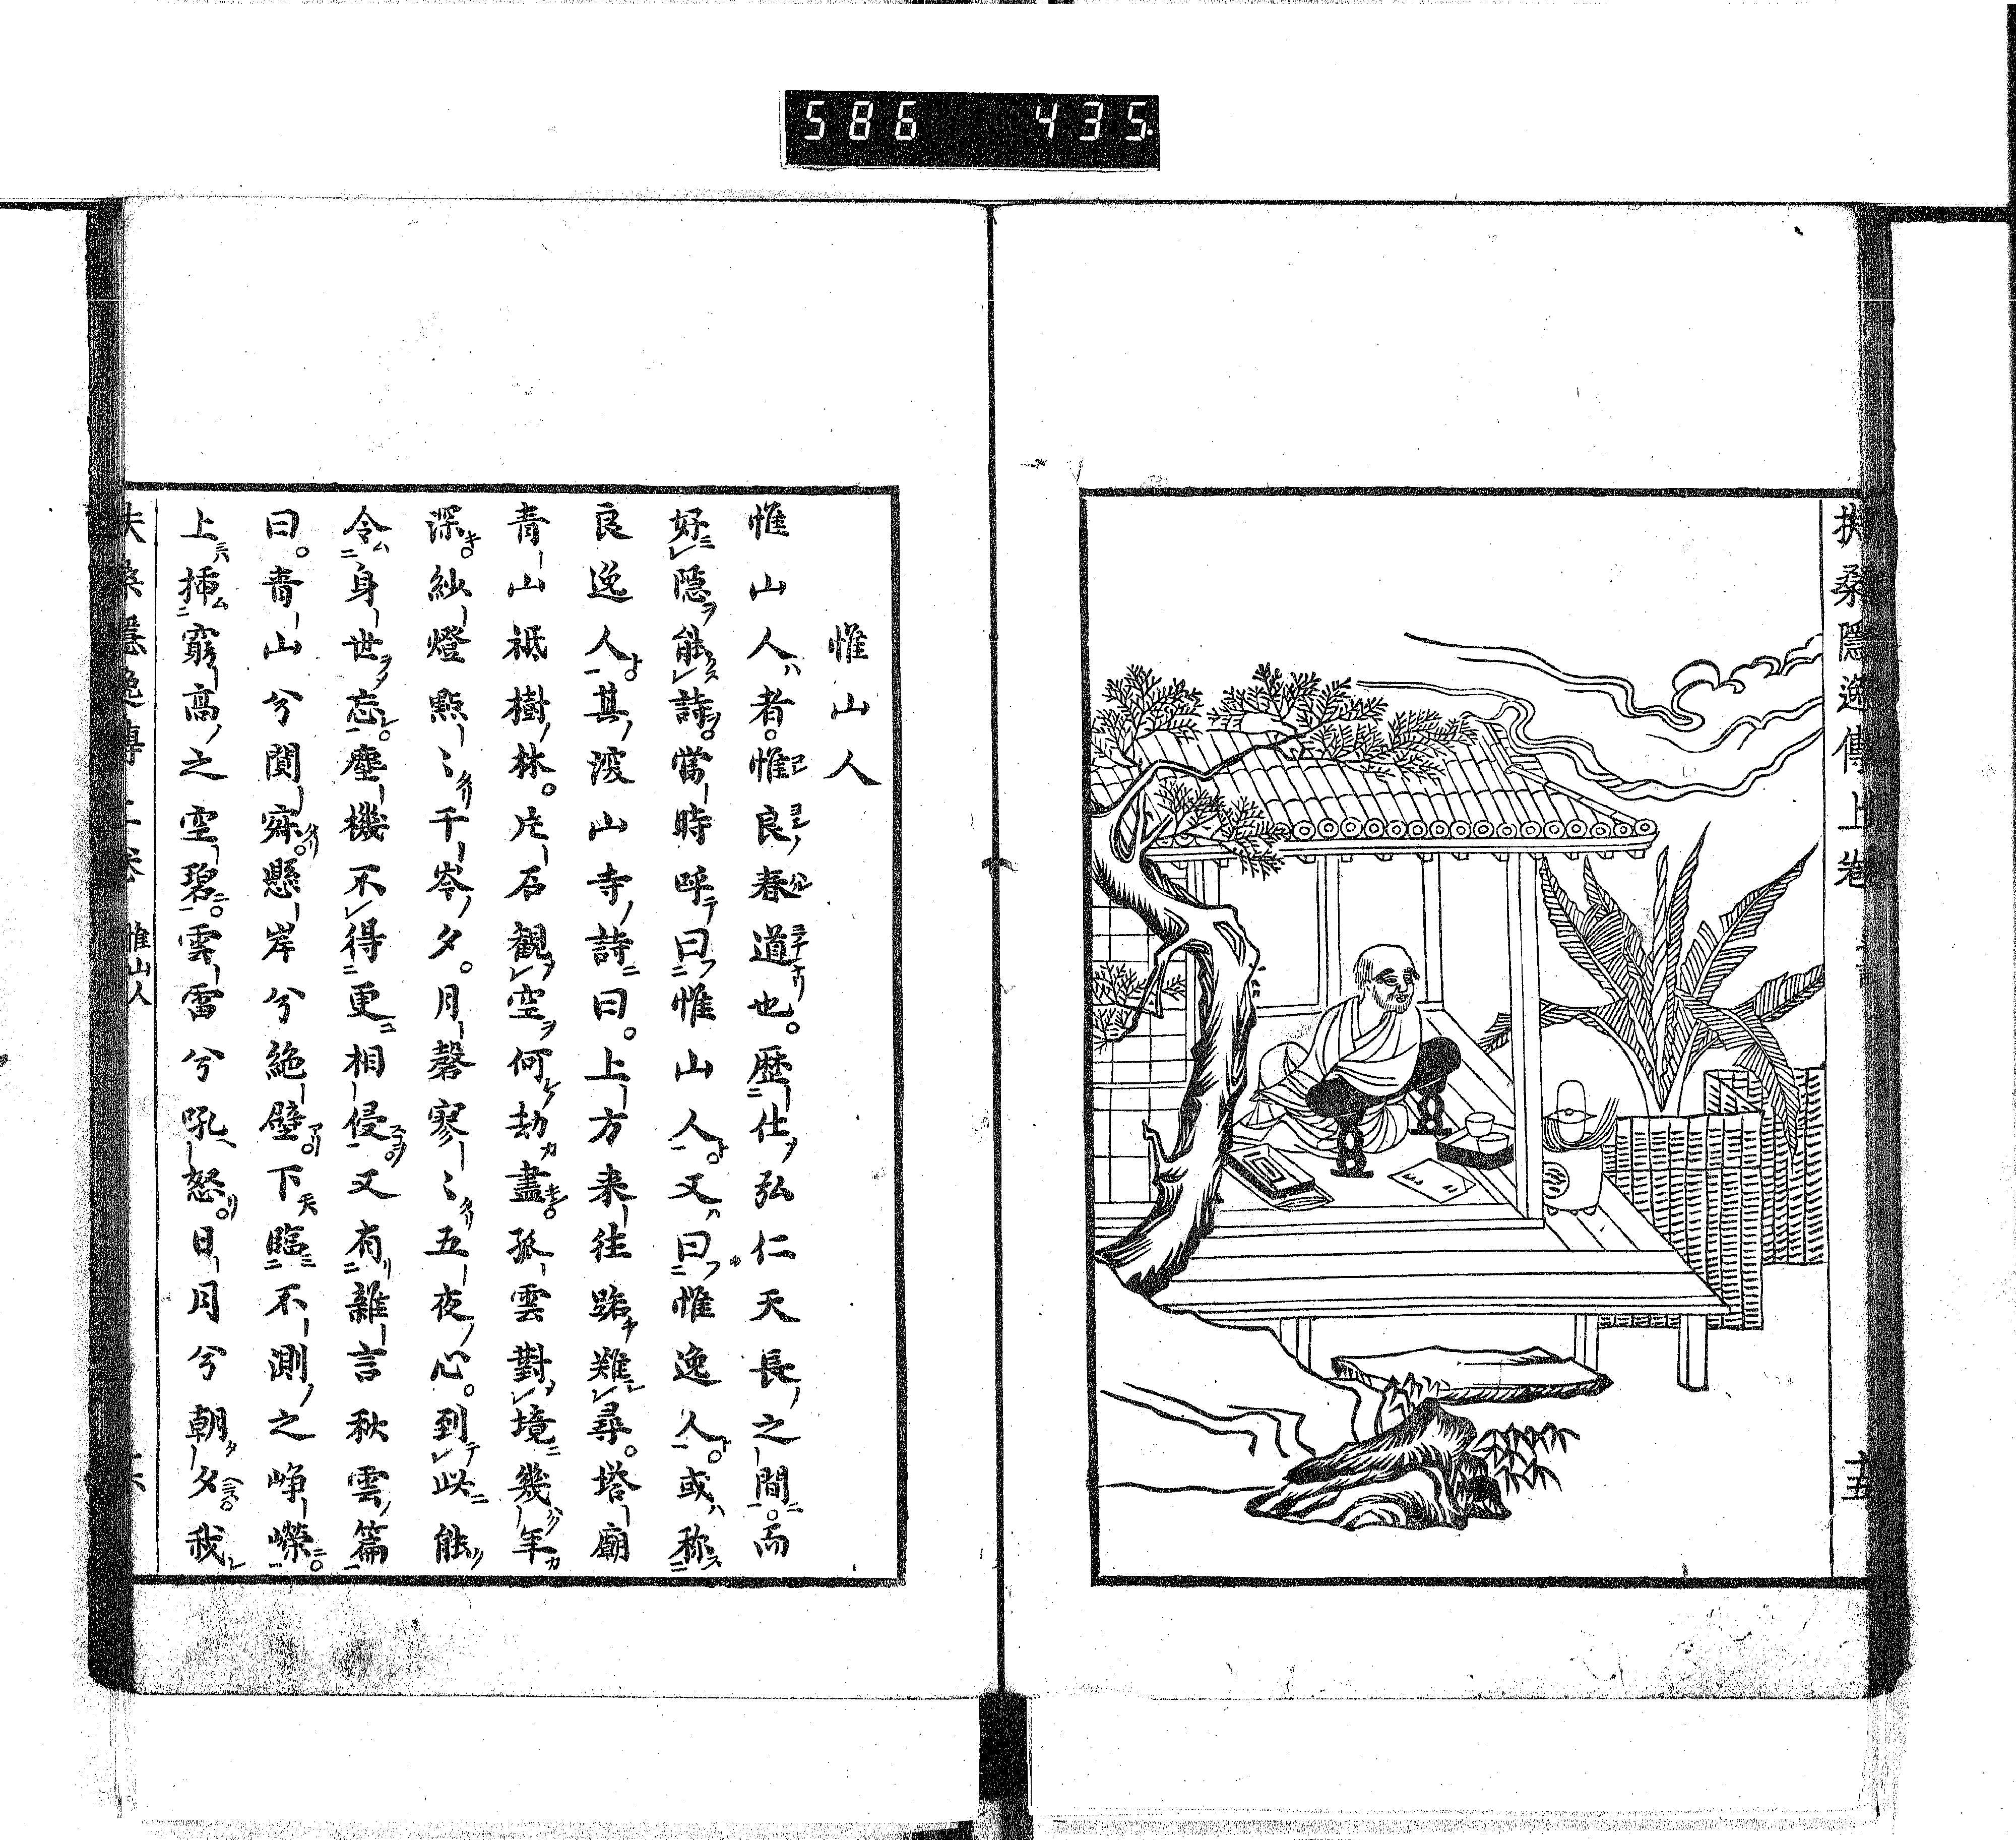 586 435.
扶桑隱逸傳上卷
十五
惟山人
惟山人者。惟良春道也。歴仕弘仁天長之間。而
好隱能詩。當時呼曰惟山人。又曰惟逸人。或称
良逸人。其渡山寺詩曰。上方来往路難尋。塔廟
青山祗樹林。片石観空何劫盡。孤雲對境幾年
深。紗燈點〻千岑夕。月磬寥〻五夜心。到此能
令身世忘。塵機不得更相侵。又有雜言秋雲篇
曰。青山兮闃寂。懸岸兮絶壁。下臨不測之崢嶸。
上揷窮高之空碧。雲雷兮吼怒。日月兮朝夕。我
惟山人